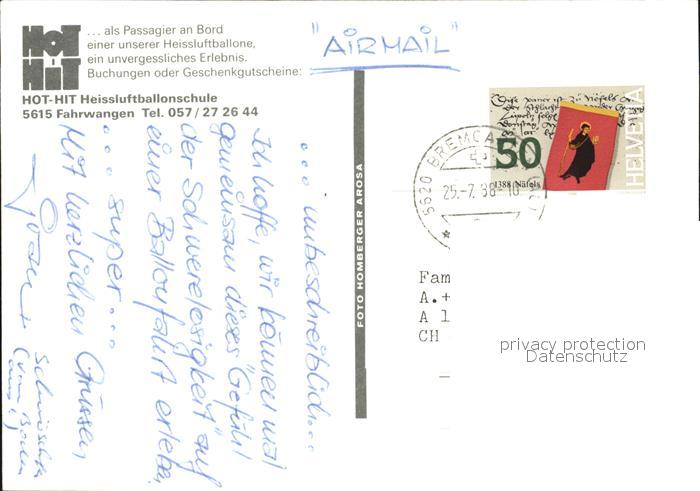 HOT
HIT
... als Passagier an Bord
einer unserer Heissluftballone,
ein unvergessliches Erlebnis.
Buchungen oder Geschenkgutscheine:
HOT-HIT Heissluftballonschule
5615 Fahrwangen Tel. 057/27 26 44
"AIRMAIL"
... unbeschreiblich...
Ich hoffe, wir können mal
gemeinsam dieses "Gefühl
der Schwerelosigkeit" auf
einer Ballonfahrt erleben
... super...
Mit herzlichen Grüssen
FOTO HOMBERGER AROSA
50
1388 Näfels
HELVETIA
5620 BREMGA
25.-7. 88-10
Fam
A.+
A l
CH
privacy protection
Datenschutz